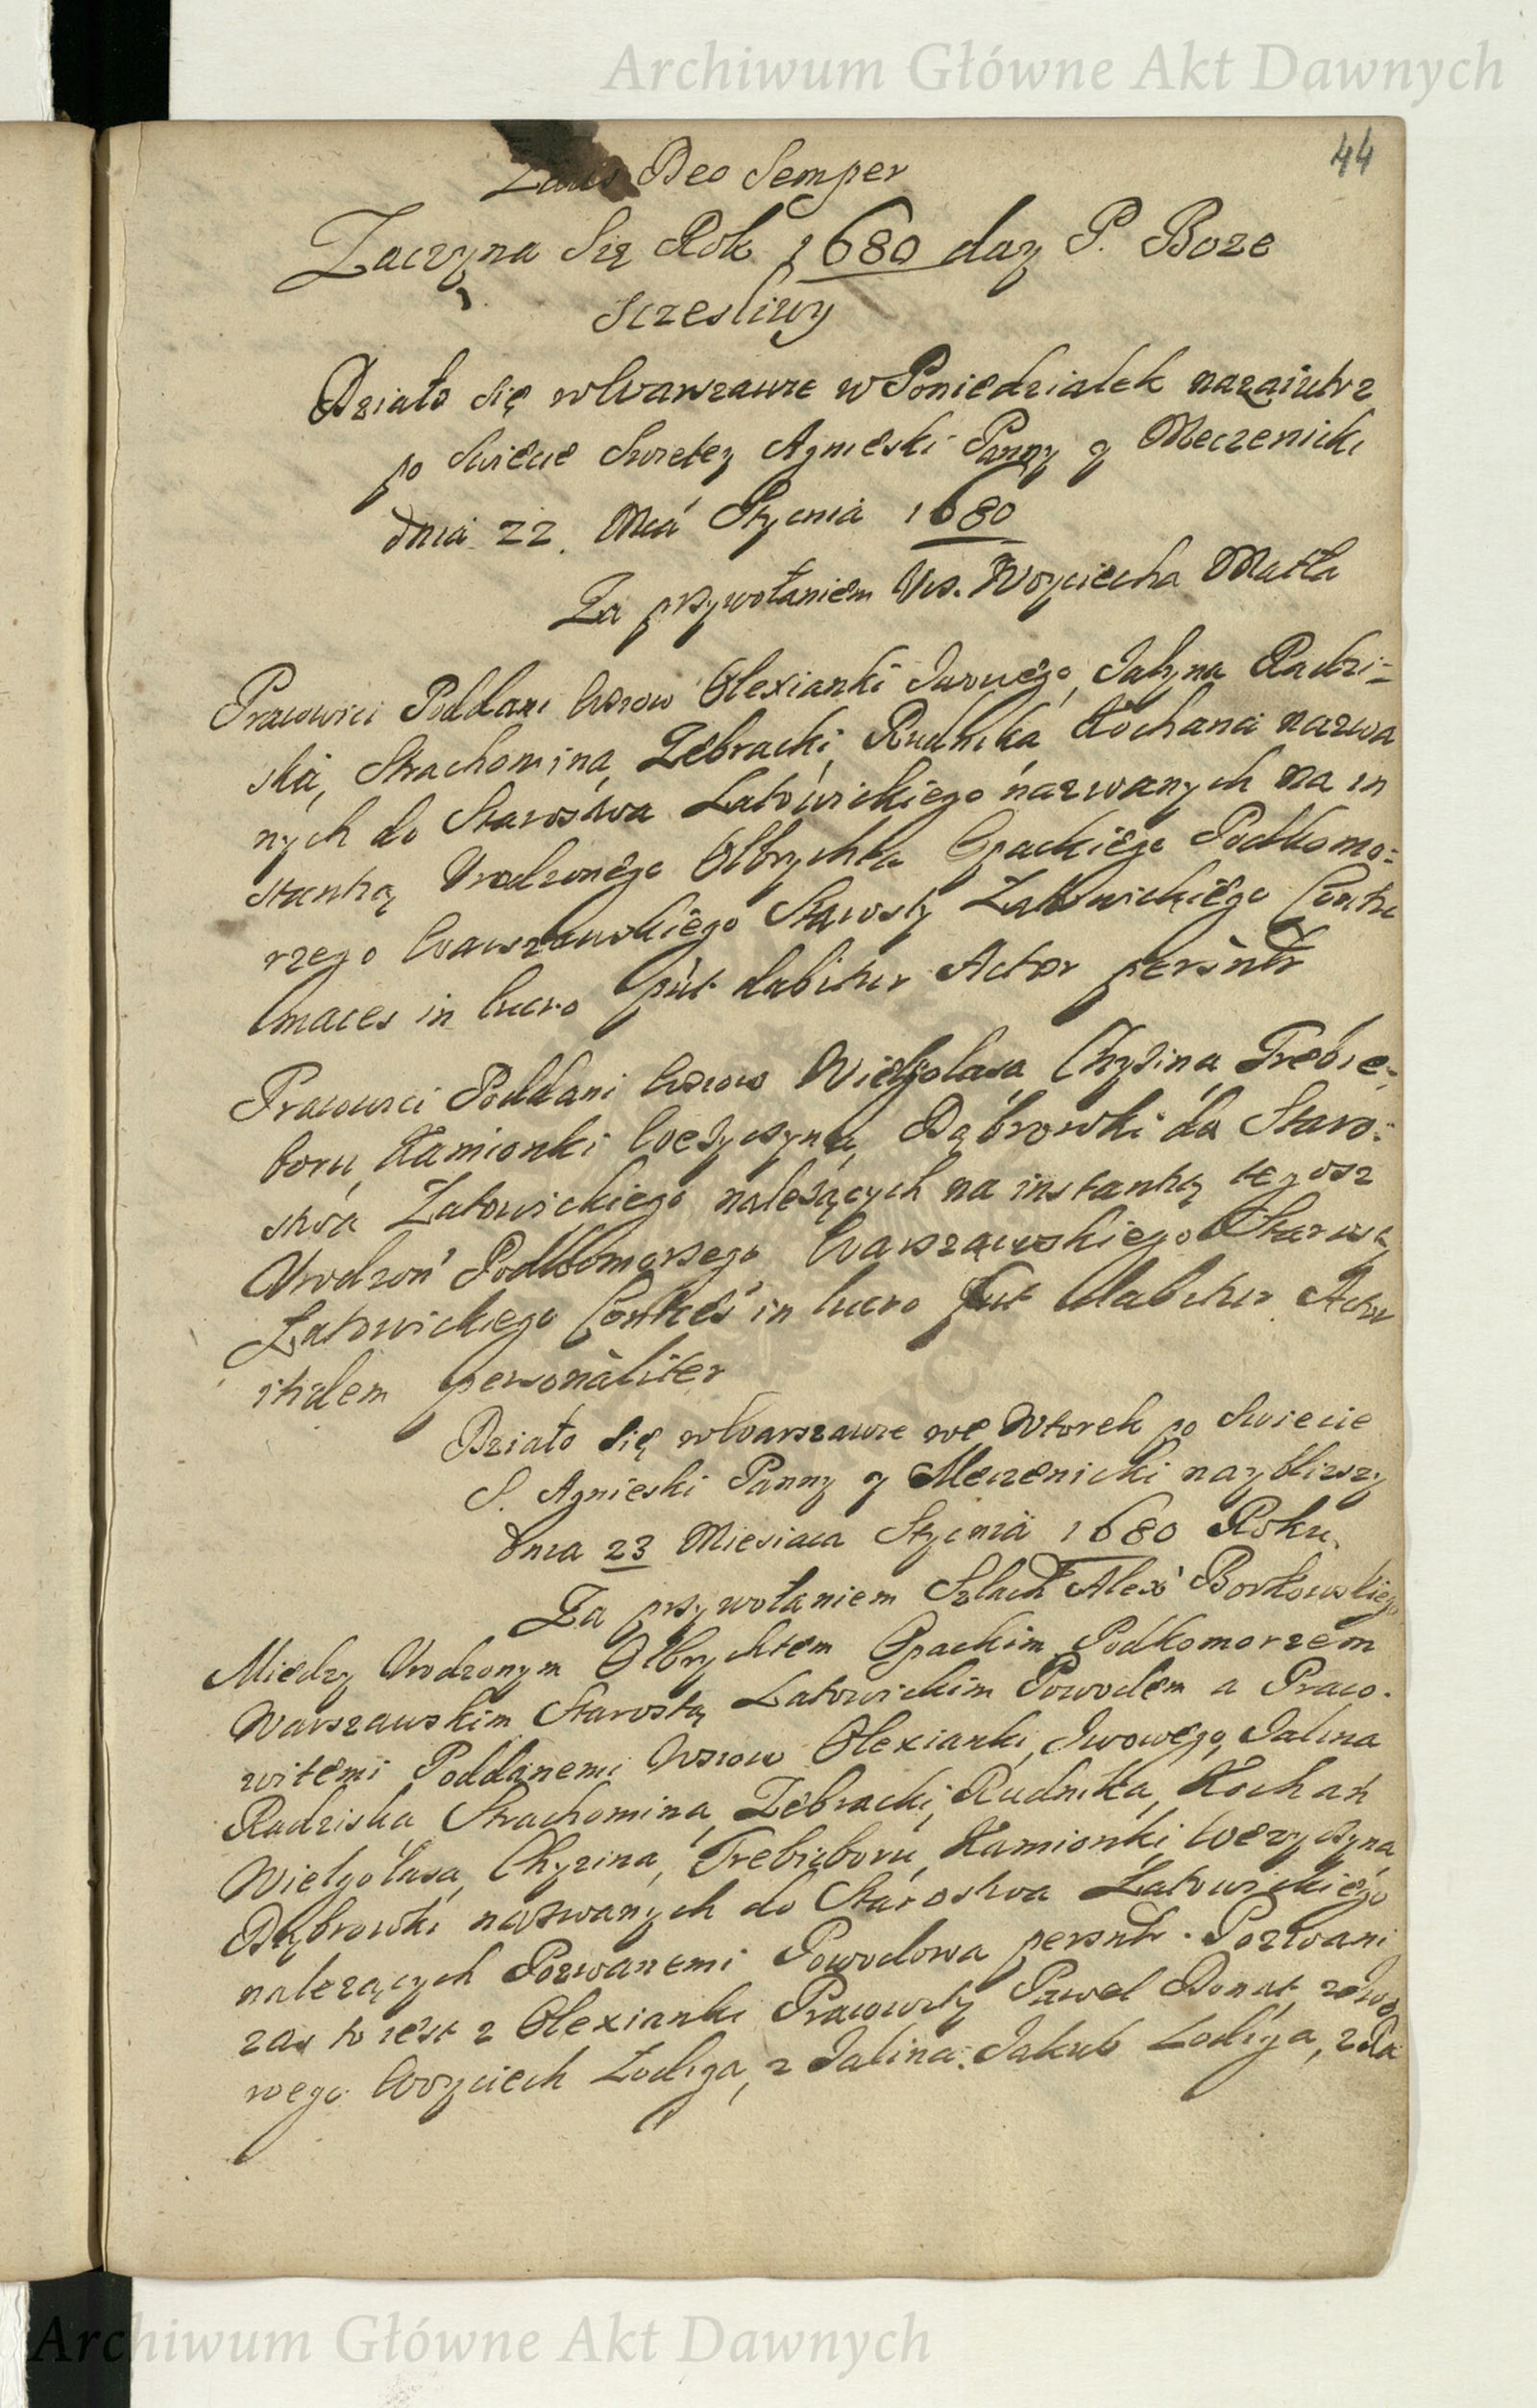 Archiwum Główne Akt Dawnych
44
Laus Deo Semper
Zaczyna Się Rok 1680 day P. Boze
Sczesliwy
Działo się w Warszawie w Poniedziałek nazaiutrz
po Swiecie Swietey Agnieski Panny y Meczenicki
dnia 22. Mca Stycnia 1680
Za przywołaniem Ws. Woyciecha Matla
Pracowici Poddani Wsiow Olexianki Iwowego, Jalyna Radzi-
ska, Strachomina, Zebracki, Rudnika Kochana nazwa
nych do Starostwa Latowickiego nazwanych na in
stantią Vrodzonego Olbrychta Opackiego Podkomo-
rzego Warszawskiego Starosty Latowickiego Contu
maces in lucro put dabitur Actor persntr
Pracowici Poddani Wsiow Wielgolasa Chyzina Trebie-
boru, Kamionki Wezyczyna, Dąbrowki do Staro-
stwa Latowickiego nalezących na instantią tegosz
Vrodzon Podkomorzego Warszawskiego Starosty
Latowickiego Contces in lucro put dabitur Actor
itidem personaliter
Działo się w Warszawie we Wtorek po Swiecie
S. Agnieski Panny y Meczenicki nayblizszy
dnia 23 Miesiaca Stycnia 1680 Roku
Za przywołaniem Szlach Alex Borkowskiego
Miedzy Vrodzonym Olbrychtem Opackim Podkomorzem
Warszawskim Starostą Latowickim Powodem a Praco-
witemi Poddanemi Wsiow Olexianki, Iwowego, Jalina
Radziska Strachomina, Zebracki, Rudnika, Kochan
Wielgolasa, Chyzina, Trebieboru, Kamionki, Wezyczyna
Dąbrowki nazwanych do Starostwa Latowickiego
nalezących Pozwanemi Powodowa persntr. Pozwani
zas to iest z Olexianki Pracowity Paweł Donat, z Iwo
wego Woyciech Lodyga, z Jalina Jakub Lodyga, z Ra
Archiwum Główne Akt Dawnych